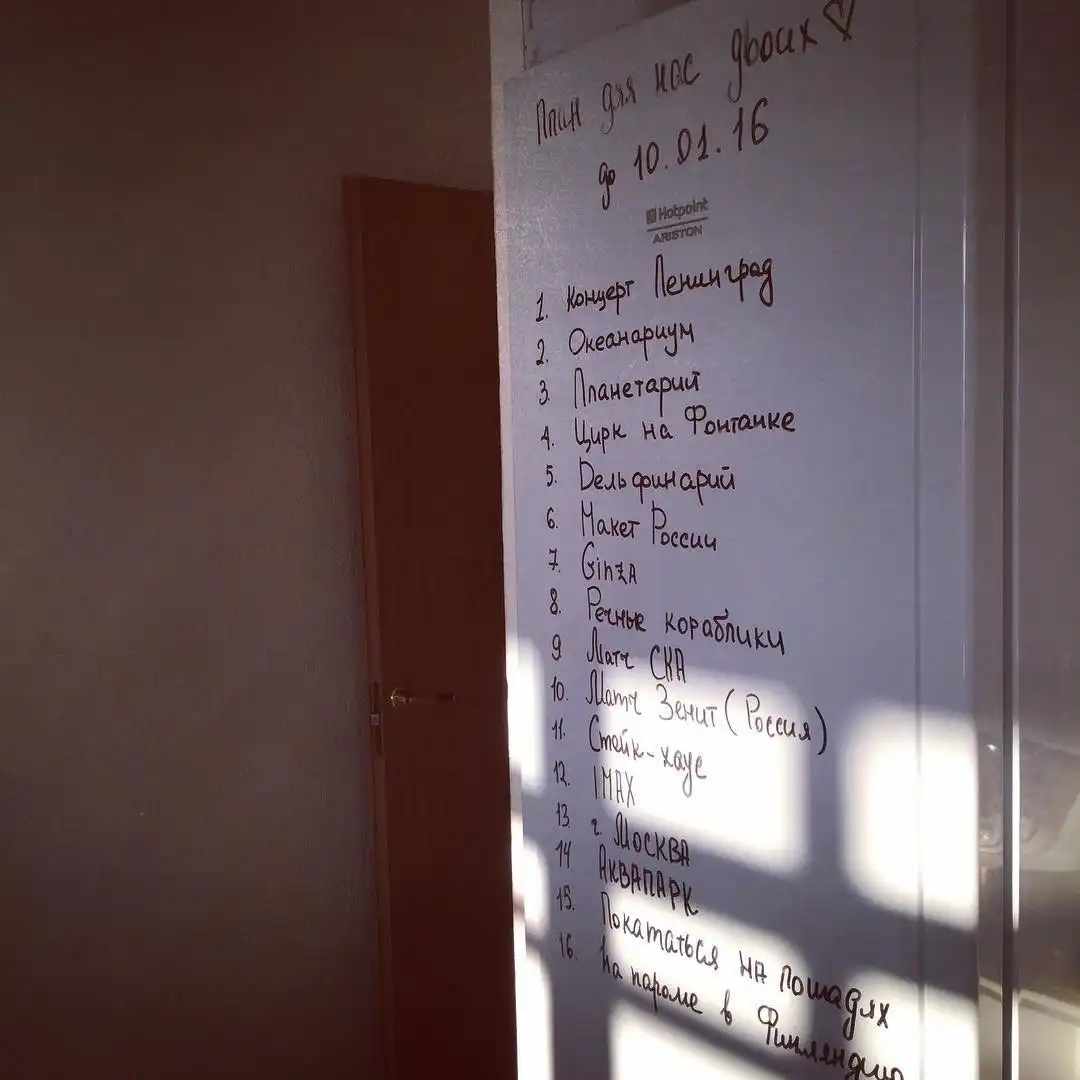 План для нас двоих ♡
до 10.01.16
Hotpoint
ARISTON
1. Концерт Ленинград
2. Океанариум
3. Планетарий
4. Цирк на Фонтанке
5. Дельфинарий
6. Макет России
7. GinzA
8. Речные кораблики
9 Матч СКА
10. Матч Зенит (Россия)
11. Стейк-хаус
12. IMAX
13. г. МОСКВА
14 АКВАПАРК
15. Покататься на лошадях
16. На пароме в Финляндию